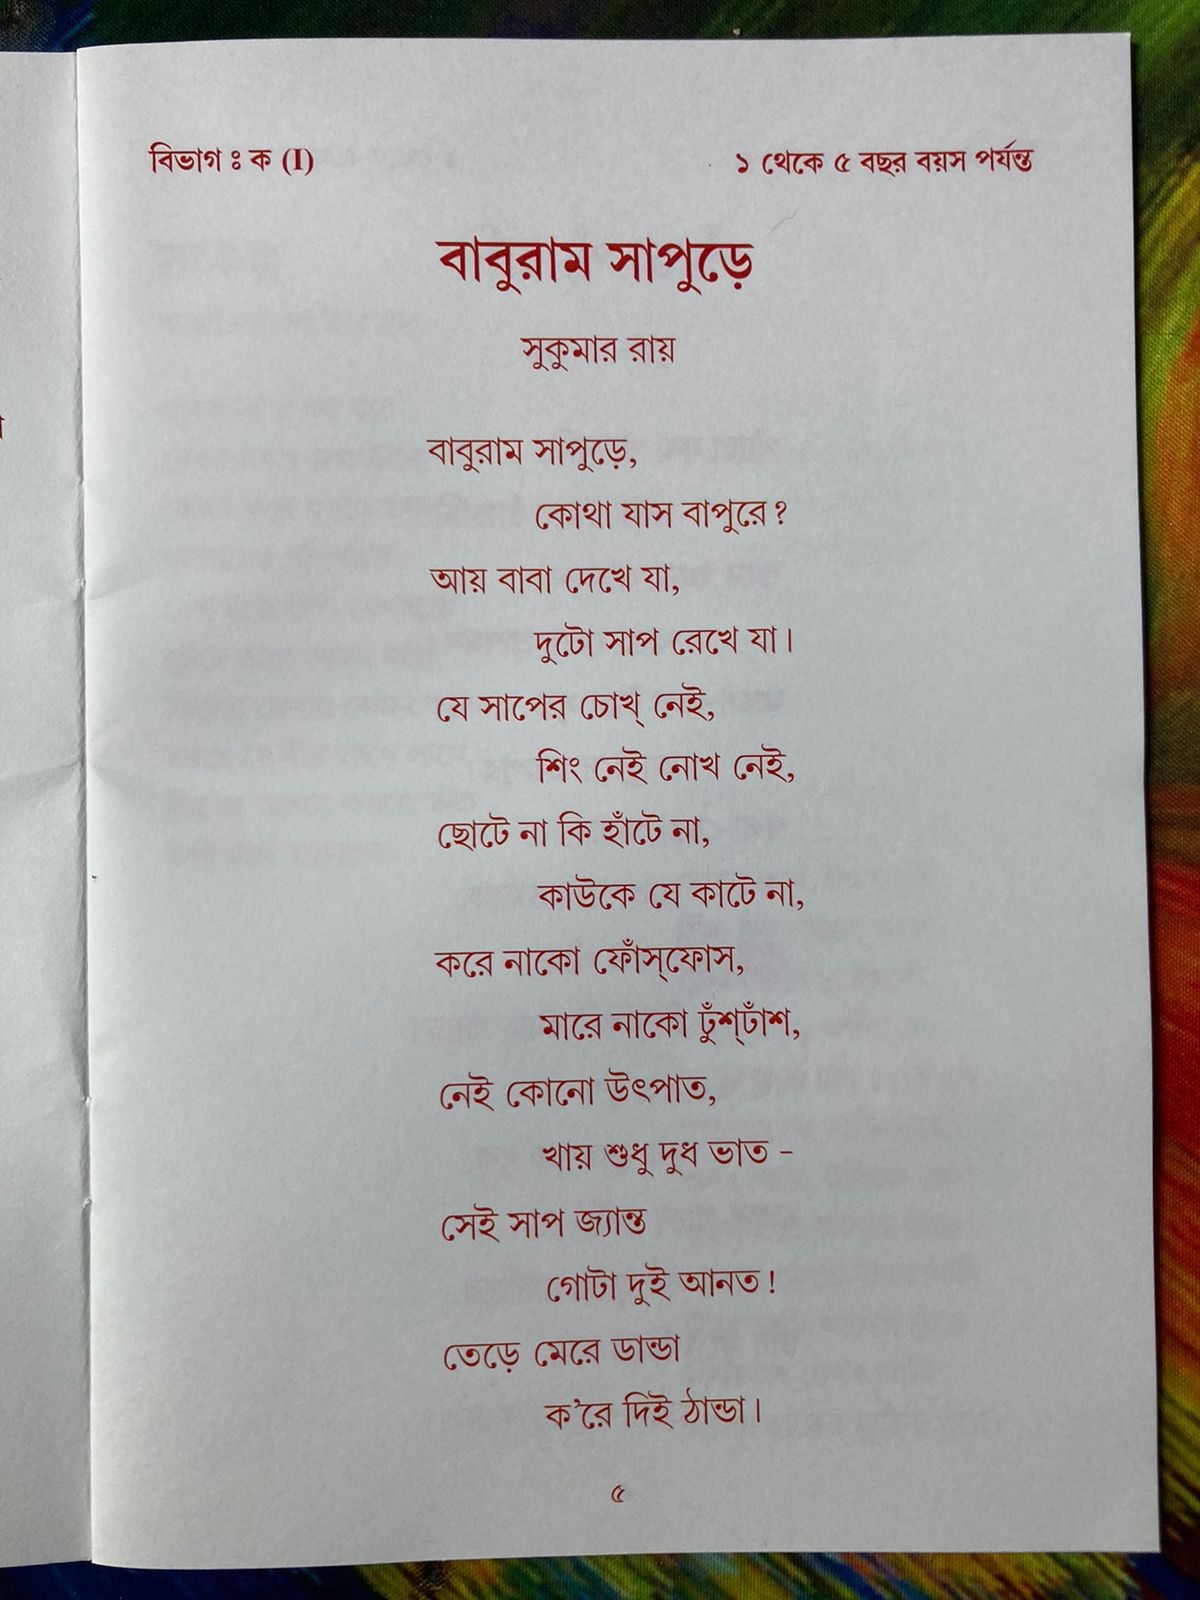 বিভাগ ঃ ক (I)
১ থেকে ৫ বছর বয়স পর্যন্ত
বাবুরাম সাপুড়ে
সুকুমার রায়
বাবুরাম সাপুড়ে,
কোথা যাস বাপুরে?
আয় বাবা দেখে যা,
দুটো সাপ রেখে যা।
যে সাপের চোখ্ নেই,
শিং নেই নোখ নেই,
ছোটে না কি হাঁটে না,
কাউকে যে কাটে না,
করে নাকো ফোঁস্ফোস,
মারে নাকো ঢুঁশ্ঢাঁশ,
নেই কোনো উৎপাত,
খায় শুধু দুধ ভাত -
সেই সাপ জ্যান্ত
গোটা দুই আনত!
তেড়ে মেরে ডান্ডা
ক'রে দিই ঠান্ডা।
৫